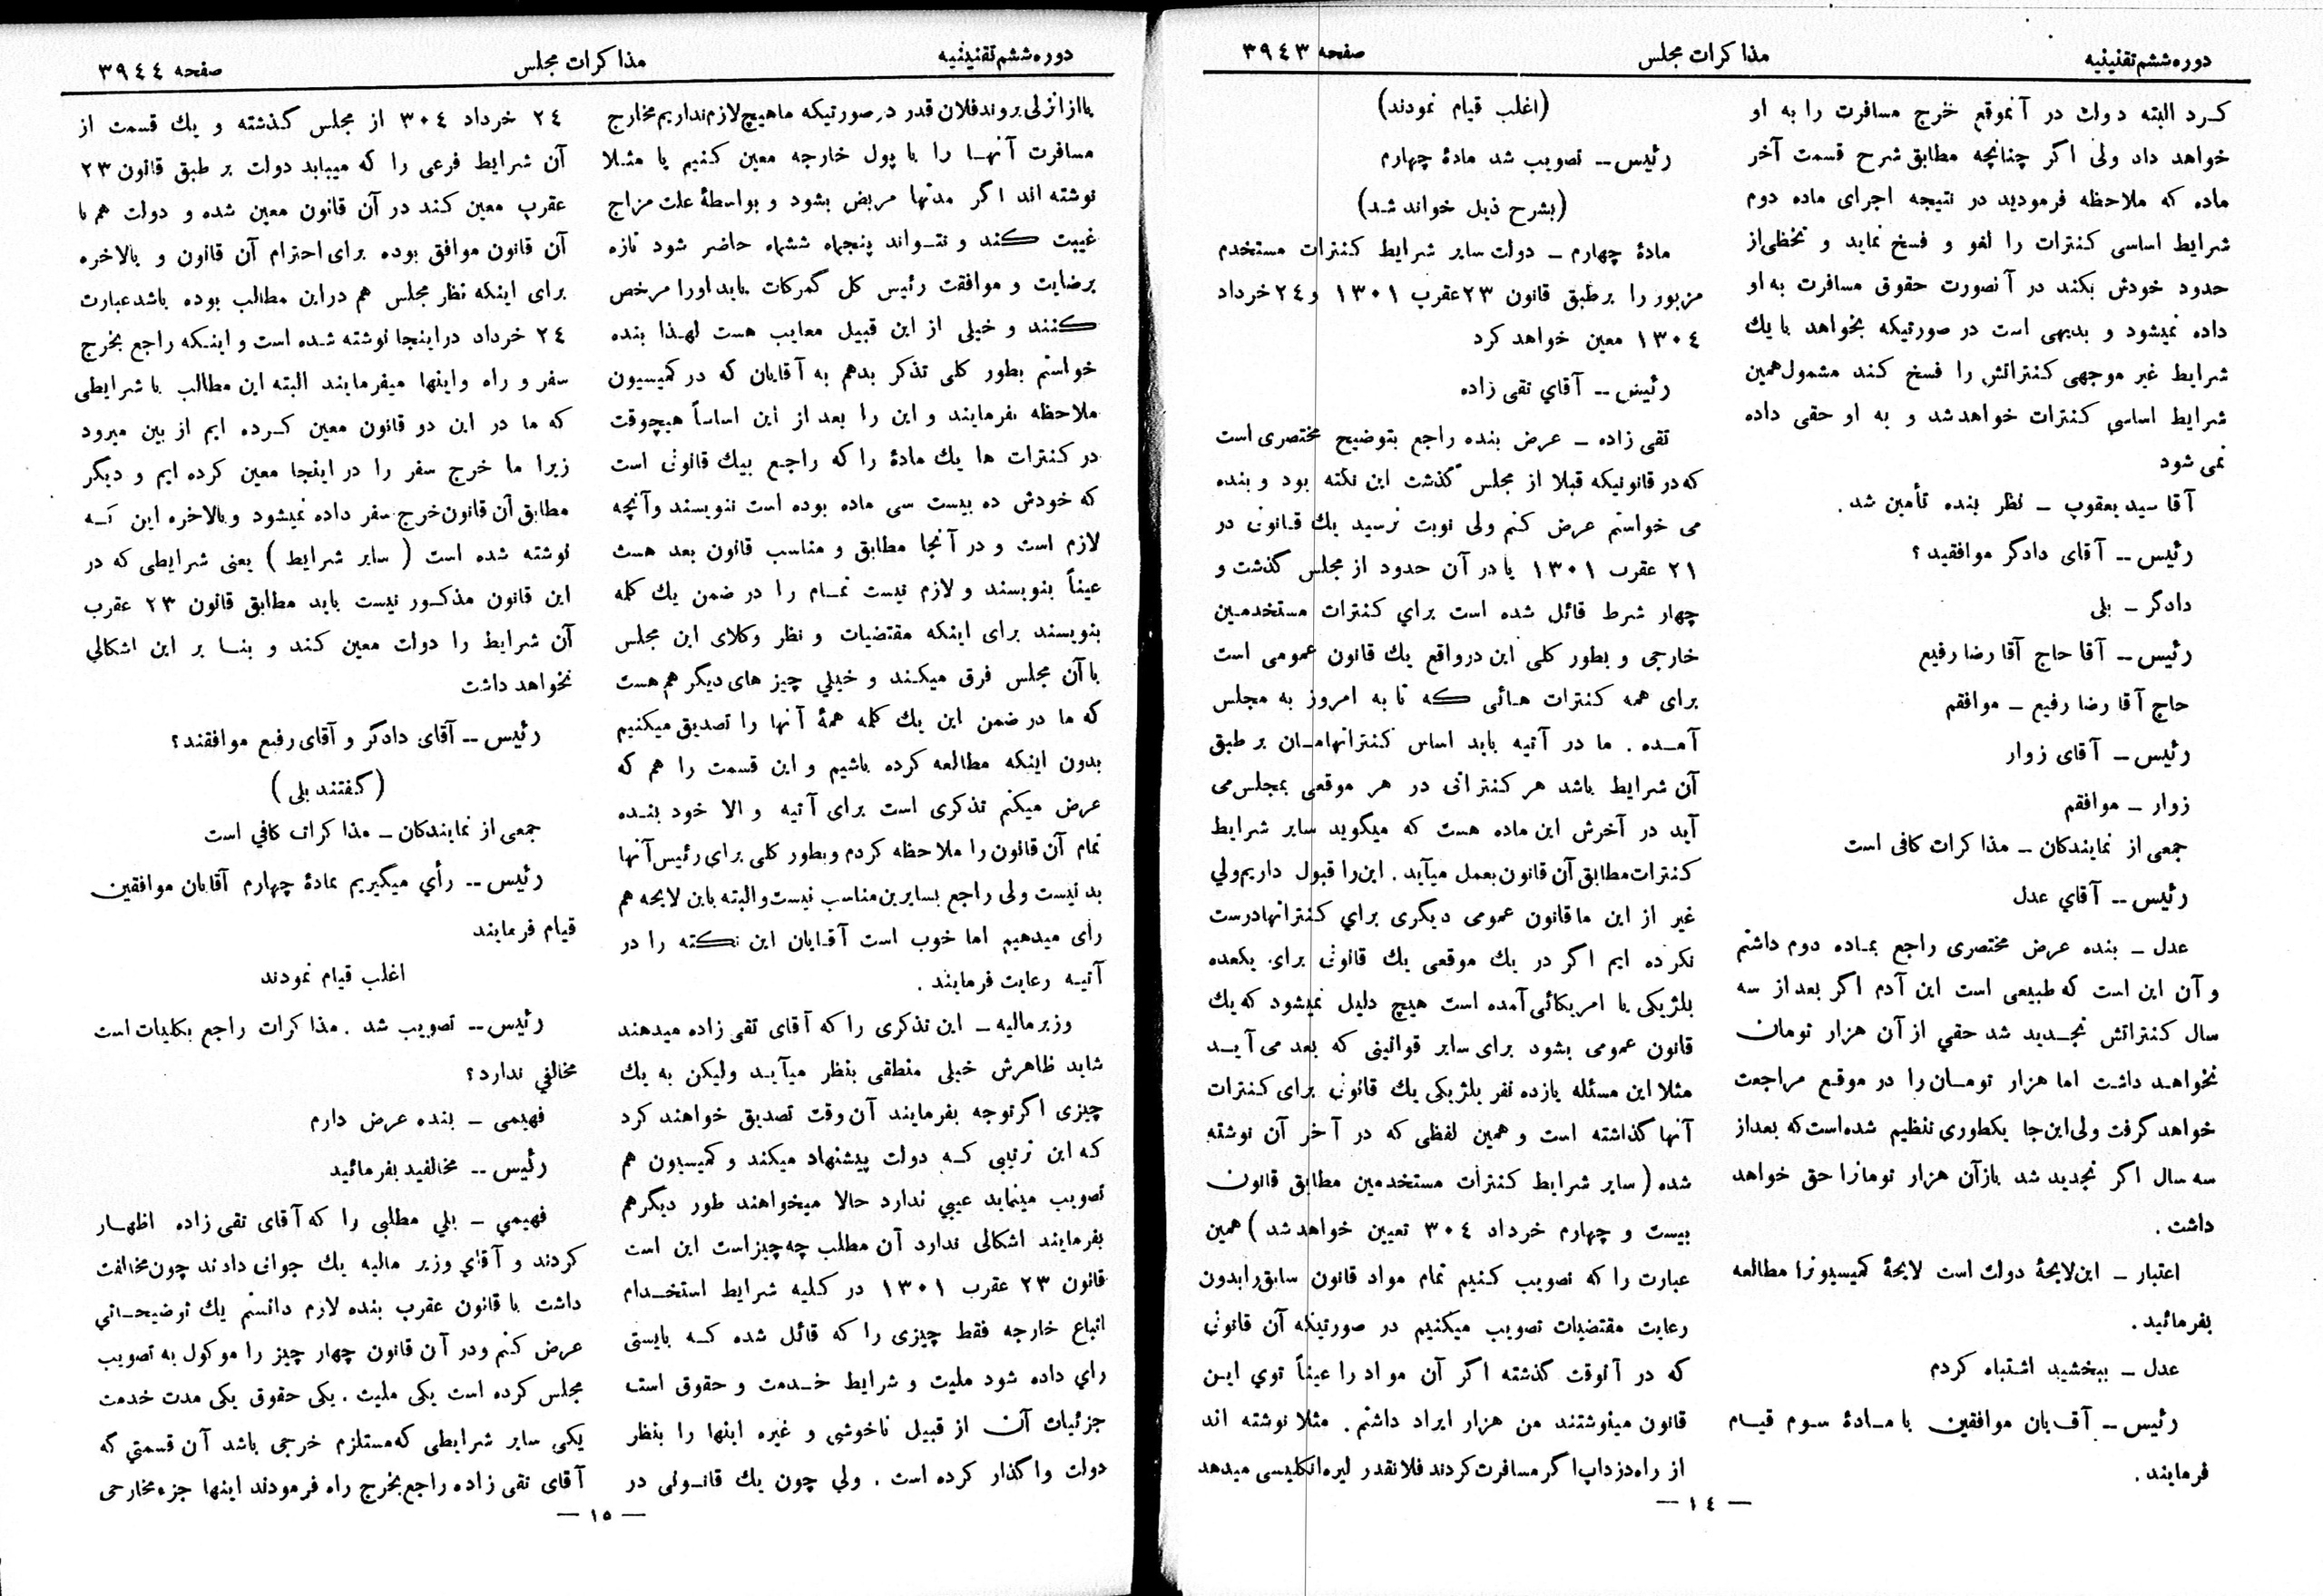 دوره ششم تقنینیه
مذاکرات مجلس
صفحه ۳۹۴۳
کرد البته دولت در آنموقع خرج مسافرت را به او
خواهد داد ولی اگر چنانچه مطابق شرح قسمت آخر
ماده که ملاحظه فرمودید در نتیجه اجرای ماده دوم
شرایط اساسی کنترات را لغو و فسخ نماید و تخطی از
حدود خودش بکند در آنصورت حقوق مسافرت به او
داده نمیشود و بدیهی است در صورتیکه بخواهد با یك
شرایط غیر موجهی کنتراتش را فسخ کند مشمول همین
شرایط اساسی کنترات خواهد شد و به او حقی داده
نمی شود
آقا سید یعقوب ـ نظر بنده تأمین شد .
رئیس ــ آقای دادگر موافقید ؟
دادگر ـ بلی
رئیس ــ آقا حاج آقا رضا رفیع
حاج آقا رضا رفیع ـ موافقم
رئیس ــ آقای زوار
زوار ـ موافقم
جمعی از نمایندکان ـ مذاکرات کافی است
رئیس ــ آقاي عدل
عدل ـ بنده عرض مختصری راجع بماده دوم داشتم
و آن این است که طبیعی است این آدم اگر بعد از سه
سال کنتراتش تجدید شد حقي از آن هزار تومان
نخواهد داشت اما هزار تومان را در موقع مراجعت
خواهد گرفت ولی این جا یکطوری تنظیم شده است که بعد از
سه سال اگر تجدید شد باز آن هزار تومانرا حق خواهد
داشت .
اعتبار ـ این لایحۀ دولت است لایحۀ کمیسیونرا مطالعه
بفرمائید .
عدل ـ ببخشید اشتباه کردم
رئیس ــ آقایان موافقین با مادۀ سوم قیام
فرمایند .
(اغلب قیام نمودند)
رئیس ــ تصویب شد مادۀ چهارم
(بشرح ذیل خوانده شد)
مادۀ چهارم ـ دولت سایر شرایط کنترات مستخدم
مزبور را بر طبق قانون ۲۳ عقرب ۱۳۰۱ و ۲۴ خرداد
۱۳۰۴ معین خواهد کرد
رئیس ــ آقاي تقی زاده
تقی زاده ـ عرض بنده راجع بتوضیح مختصری است
که در قانونیکه قبلا از مجلس گذشت این نکته بود و بنده
می خواستم عرض کنم ولی نوبت نرسید یك قانونی در
۲۱ عقرب ۱۳۰۱ یا در آن حدود از مجلس گذشت و
چهار شرط قائل شده است براي کنترات مستخدمین
خارجی و بطور کلی این در واقع یك قانون عمومی است
برای همه کنترات هائی که تا به امروز به مجلس
آمده . ما در آتیه باید اساس کنتراتهامان بر طبق
آن شرایط باشد هر کنتراتی در هر موقعی بمجلس می
آید در آخرش این ماده هست که میگوید سایر شرایط
کنترات مطابق آن قانون بعمل میآید . این را قبول داریم ولي
غیر از این ما قانون عمومی دیگری براي کنتراتها درست
نکرده ایم اگر در یك موقعی یك قانونی برای یکعده
بلژیکی یا امریکائی آمده است هیچ دلیل نمیشود که یك
قانون عمومی بشود برای سایر قوانینی که بعد می آید
مثلا این مسئله یازده نفر بلژیکی یك قانونی برای کنترات
آنها گذاشته است و همین لفظی که در آخر آن نوشته
شده (سایر شرایط کنترات مستخدمین مطابق قانون
بیست و چهارم خرداد ۳۰۴ تعیین خواهد شد ) همین
عبارت را که تصویب کنیم تمام مواد قانون سابق را بدون
رعایت مقتضیات تصویب میکنیم در صورتیکه آن قانونی
که در آنوقت گذشته اگر آن مواد را عیناً توي این
قانون مینوشتند من هزار ایراد داشتم . مثلا نوشته اند
از راه دزداب اگر مسافرت کردند فلانقدر لیره انکلیسی میدهد
— ۱۴ —
دوره ششم تقنینیه
مذاکرات مجلس
صفحه ۳۹۴۴
یا از انزلی بروند فلان قدر در صورتیکه ما هیچ لازم نداریم مخارج
مسافرت آنها را با پول خارجه معین کنیم یا مثلا
نوشته اند اگر مدتها مریض بشود و بواسطۀ علت مزاج
غیبت کند و نتواند پنجماه ششماه حاضر شود تازه
برضایت و موافقت رئیس کل گمرکات باید او را مرخص
کنند و خیلی از این قبیل معایب هست لهذا بنده
خواستم بطور کلی تذکر بدهم به آقایان که در کمیسیون
ملاحظه بفرمایند و این را بعد از این اساساً هیچوقت
در کنترات ها یك مادۀ را که راجع بیك قانونی است
که خودش ده بیست سی ماده بوده است ننویسند و آنچه
لازم است و در آنجا مطابق و مناسب قانون بعد هست
عیناً بنویسند و لازم نیست تمام را در ضمن یك کلمه
بنویسند برای اینکه مقتضیات و نظر وکلای این مجلس
با آن مجلس فرق میکند و خیلي چیز های دیگر هم هست
که ما در ضمن این یك کلمه همۀ آنها را تصدیق میکنیم
بدون اینکه مطالعه کرده باشیم و این قسمت را هم که
عرض میکنم تذکری است برای آتیه و الا خود بنده
تمام آن قانون را ملاحظه کردم و بطور کلی برای رئیس آنها
بد نیست ولی راجع بسایرین مناسب نیست و البته باین لایحه هم
رأی میدهیم اما خوب است آقایان این نکته را در
آتیه رعایت فرمایند .
وزیر مالیه ـ این تذکری را که آقای تقی زاده میدهند
شاید ظاهرش خیلی منطقی بنظر میآید ولیکن به یك
چیزی اگر توجه بفرمایند آن وقت تصدیق خواهند کرد
که این ترتیبی که دولت پیشنهاد میکند و کمیسیون هم
تصویب مینماید عیبي ندارد حالا میخواهند طور دیگر هم
بفرمایند اشکالی ندارد آن مطلب چه چیز است این است
قانون ۲۳ عقرب ۱۳۰۱ در کلیه شرایط استخدام
اتباع خارجه فقط چیزی را که قائل شده که بایستی
رأي داده شود ملیت و شرایط خدمت و حقوق است
جزئیات آن از قبیل ناخوشی و غیره اینها را بنظر
دولت واگذار کرده است . ولي چون یك قانونی در
۲۴ خرداد ۳۰۴ از مجلس گذشته و یك قسمت از
آن شرایط فرعی را که میباید دولت بر طبق قانون ۲۳
عقرب معین کند در آن قانون معین شده و دولت هم با
آن قانون موافق بوده برای احترام آن قانون و بالاخره
برای اینکه نظر مجلس هم در این مطالب بوده باشد عبارت
۲۴ خرداد در اینجا نوشته شده است و اینکه راجع بخرج
سفر و راه و اینها میفرمایند البته این مطالب با شرایطی
که ما در این دو قانون معین کرده ایم از بین میرود
زیرا ما خرج سفر را در اینجا معین کرده ایم و دیگر
مطابق آن قانون خرج سفر داده نمیشود و بالاخره این که
نوشته شده است ( سایر شرایط ) یعنی شرایطی که در
این قانون مذکور نیست باید مطابق قانون ۲۳ عقرب
آن شرایط را دولت معین کند و بنا بر این اشکالي
نخواهد داشت
رئیس ــ آقای دادگر و آقای رفیع موافقند ؟
(گفتند بلی)
جمعی از نمایندکان ـ مذاکرات کافي است
رئیس ــ رأي میگیریم بمادۀ چهارم آقایان موافقین
قیام فرمایند
اغلب قیام نمودند
رئیس ــ تصویب شد . مذاکرات راجع بکلیات است
مخالفي ندارد ؟
فهیمی ـ بنده عرض دارم
رئیس ــ مخالفید بفرمائید
فهیمي ـ بلي مطلبی را که آقای تقی زاده اظهار
کردند و آقاي وزیر مالیه یك جوابی دادند چون مخالفت
داشت با قانون عقرب بنده لازم دانستم یك توضیحاتي
عرض کنم و در آن قانون چهار چیز را موکول به تصویب
مجلس کرده است یکی ملیت . یکی حقوق یکی مدت خدمت
یکی سایر شرایطی که مستلزم خرجی باشد آن قسمتي که
آقای تقی زاده راجع بخرج راه فرمودند اینها جزء مخارجی
— ۱۵ —